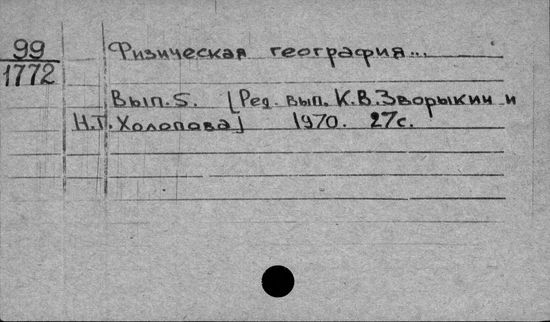 99
1772
Физическая география...
Вып. 5. [Ред. вып. К.В.Зворыкин и
Н.Т. Холопова] 1970. 27с.